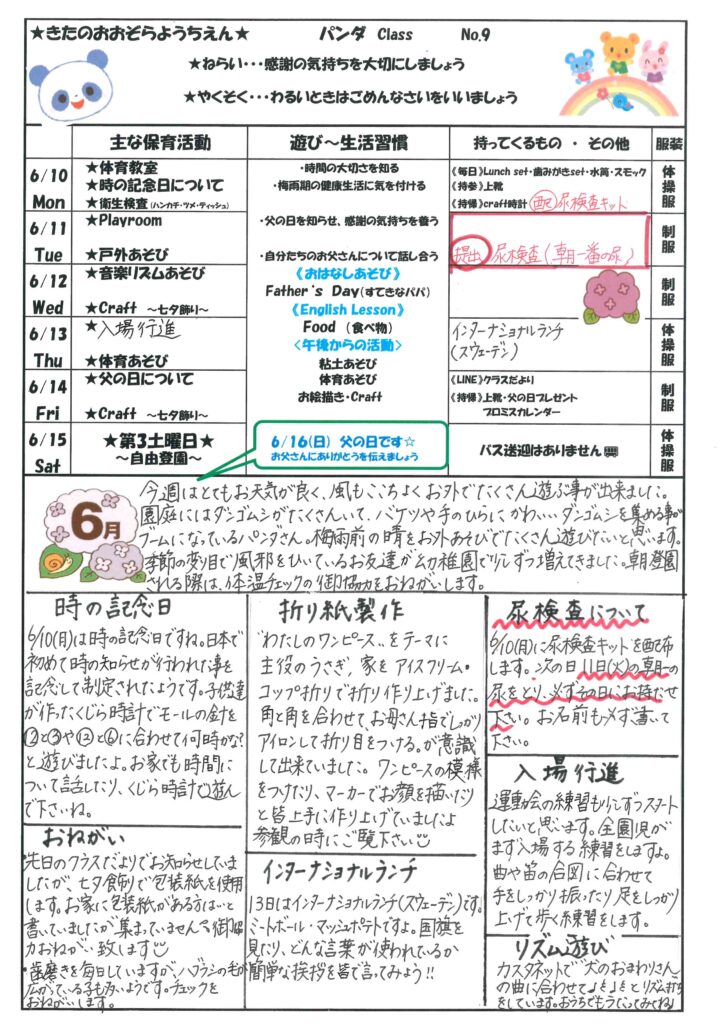 ★きたのおおぞらようちえん★ パンダ Class No.9
★ねらい・・・感謝の気持ちを大切にしましょう
★やくそく・・・わるいときはごめんなさいをいいましょう
主な保育活動 遊び～生活習慣 持ってくるもの ・ その他 服装
6/10 Mon
★体育教室
★時の記念日について
★衛生検査(ハンカチ・ツメ・ティッシュ)
・時間の大切さを知る
・梅雨期の健康生活に気を付ける
《毎日》Lunch set・歯みがきset・水筒・スモック
《持参》上靴
《持帰》craft時計 配 尿検査キット
体操服
6/11 Tue
★Playroom
★戸外あそび
・父の日を知らせ、感謝の気持ちを養う
・自分たちのお父さんについて話し合う
提出 尿検査(朝一番の尿)
制服
6/12 Wed
★音楽リズムあそび
★Craft ～七夕飾り～
《おはなしあそび》
Father's Day(すてきなパパ)
《English Lesson》
制服
6/13 Thu
★入場行進
★体育あそび
Food (食べ物)
<午後からの活動>
粘土あそび
インターナショナルランチ
(スウェーデン)
体操服
6/14 Fri
★父の日について
★Craft ～七夕飾り～
体育あそび
お絵描き・Craft
《LINE》クラスだより
《持帰》上靴・父の日プレゼント
プロミスカレンダー
制服
6/15 Sat
★第3土曜日★
～自由登園～
6/16(日) 父の日です☆
お父さんにありがとうを伝えましょう
バス送迎はありません
体操服
6月
今週はとてもお天気が良く、風もここちよくお外でたくさん遊ぶ事が出来ました。
園庭にはダンゴムシがたくさんいて、バケツや手のひらにかわいいダンゴムシを集める事が
ブームになっているパンダさん。梅雨前の晴をお外あそびでたくさん遊びたいと思います。
季節の変り目で風邪をひいているお友達が幼稚園で少しずつ増えてきました。朝、登園
される際は、体温チェックの御協力をおねがいします。
時の記念日
6/10(月)は時の記念日ですね。日本で
初めて時の知らせが行われた事を
記念して制定されたようです。子供達
が作ったくじら時計でモールの針を
⑫と③や⑫と⑥に合わせて何時かな?
と遊びましたよ。お家でも時間に
ついて話したり、くじら時計で遊ん
で下さいね。
おねがい
・先日のクラスだよりでお知らせしていま
したが、七夕飾りで包装紙を使用
します。お家に包装紙がある方はいと
書いていましたが集まっていません。御協
力おねがい致します
・歯磨きを毎日していますが、ハブラシの毛が
広がっている子も多いようです。チェックを
おねがいします。
折り紙製作
"わたしのワンピース"をテーマに
主役のうさぎ、家をアイスクリーム・
コップ折りで折り作り上げました。
角と角を合わせて、お母さん指でしっかり
アイロンして折り目をつける。が意識
して出来ていました。ワンピースの模様
をつけたり、マーカーでお顔を描いたり
と皆上手に作り上げていましたよ
参観の時にご覧下さい
インターナショナルランチ
13日はインターナショナルランチ(スウェーデン)です。
ミートボール・マッシュポテトですよ。国旗を
見たり、どんな言葉が使われているか
簡単な挨拶を皆で言ってみよう!!
尿検査について
6/10(月)に尿検査キットを配布
します。次の日11日(火)の朝一の
尿をとり、必ずその日にお持たせ
下さい。お名前も必ず書いて
下さい。
入場行進
運動会の練習も少しずつスタート
したいと思います。全園児が
まず入場する練習をしますよ。
曲や笛の合図に合わせて
手をしっかり振ったり足をしっかり
上げて歩く練習をします。
リズム遊び
カスタネットで"犬のおまわりさん"
の曲に合わせて とリズム打ち
をしています。おうちでもうたってみてね♪